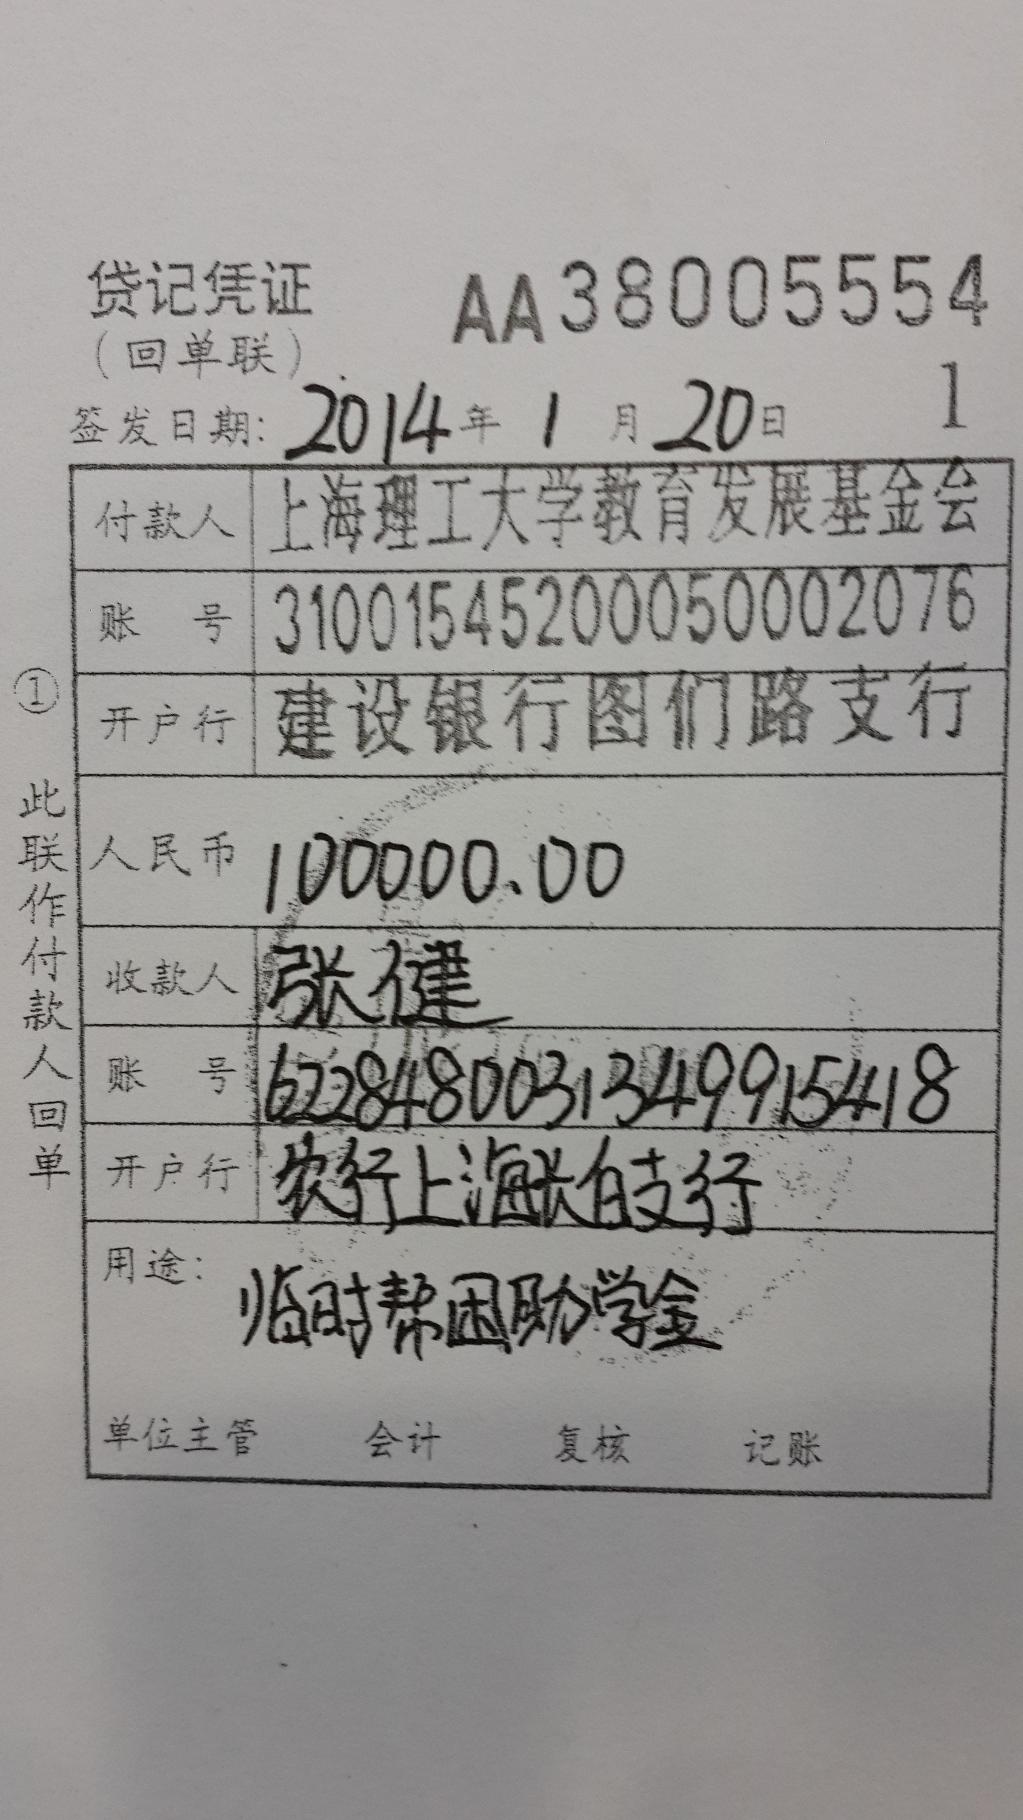 贷记凭证 AA38005554
（回单联）
1
签发日期: 2014年1月20日
付款人 上海理工大学教育发展基金会
账号 31001545200050002076
开户行 建设银行图们路支行
人民币 100000.00
收款人 张健
账号 6228480031349915418
开户行 农行上海长白支行
用途: 临时帮困助学金
单位主管 会计 复核 记账
①此联作付款人回单